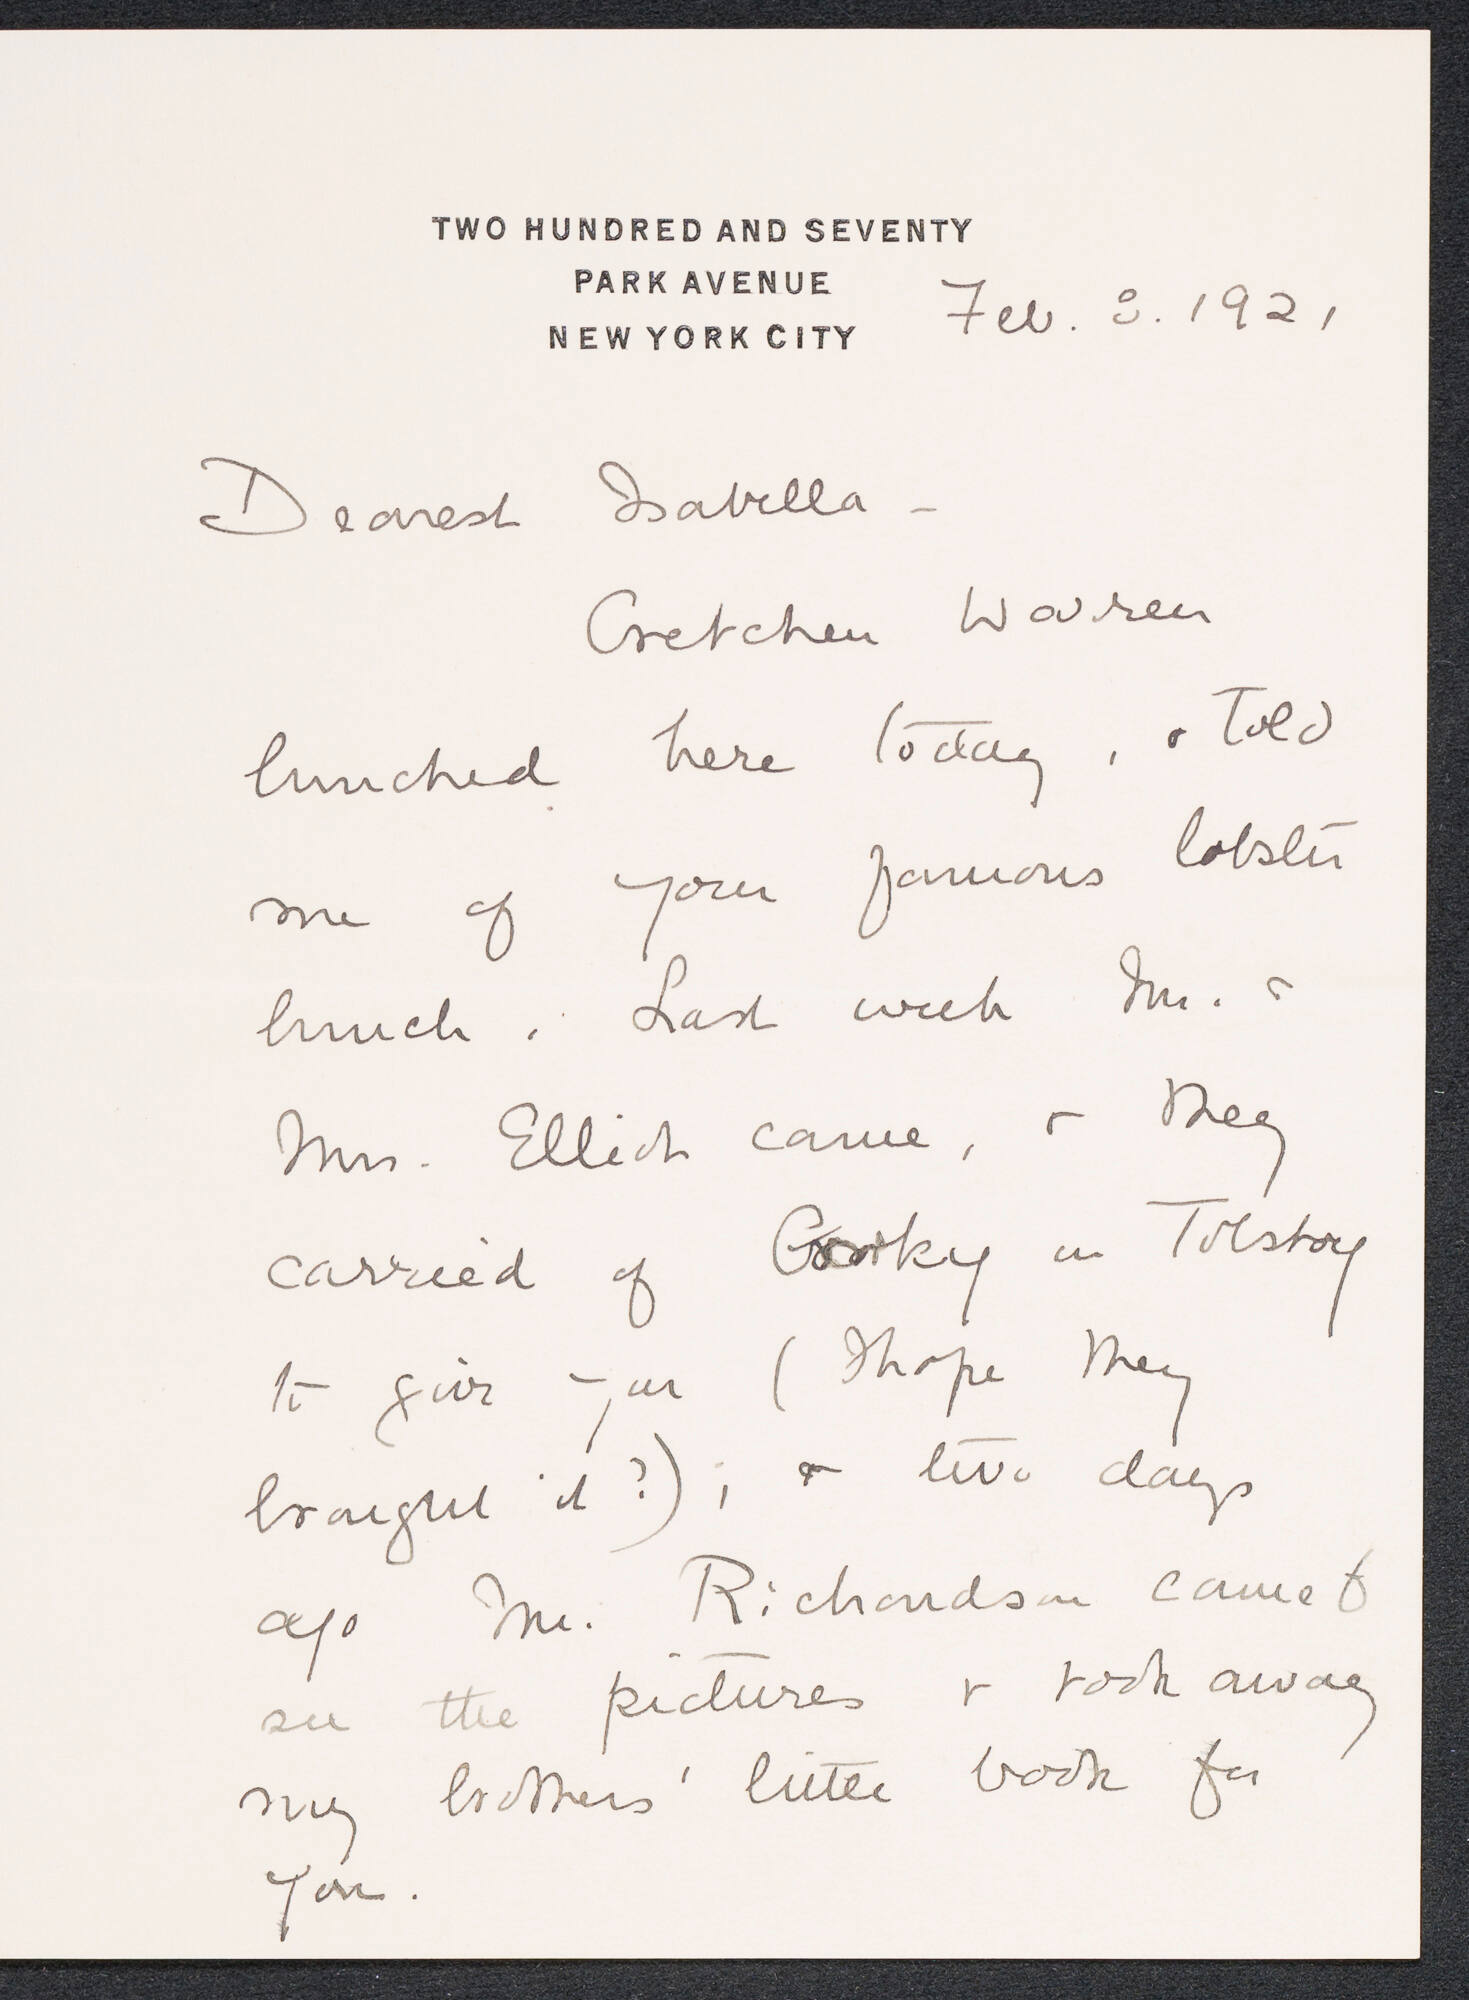 TWO HUNDRED AND SEVENTY
PARK AVENUE
NEW YORK CITY
Feb. 8. 1921
Dearest Isabella -
Gretchen Warren
lunched here today, & told
me of your famous lobster
lunch. Last week Mr. &
Mrs. Elliot came, & they
carried of Gorky on Tolstoy
to give you ( I hope they
brought it?); & two days
ago Mr. Richardson came to
see the pictures & took away
my brothers' little book for
you.